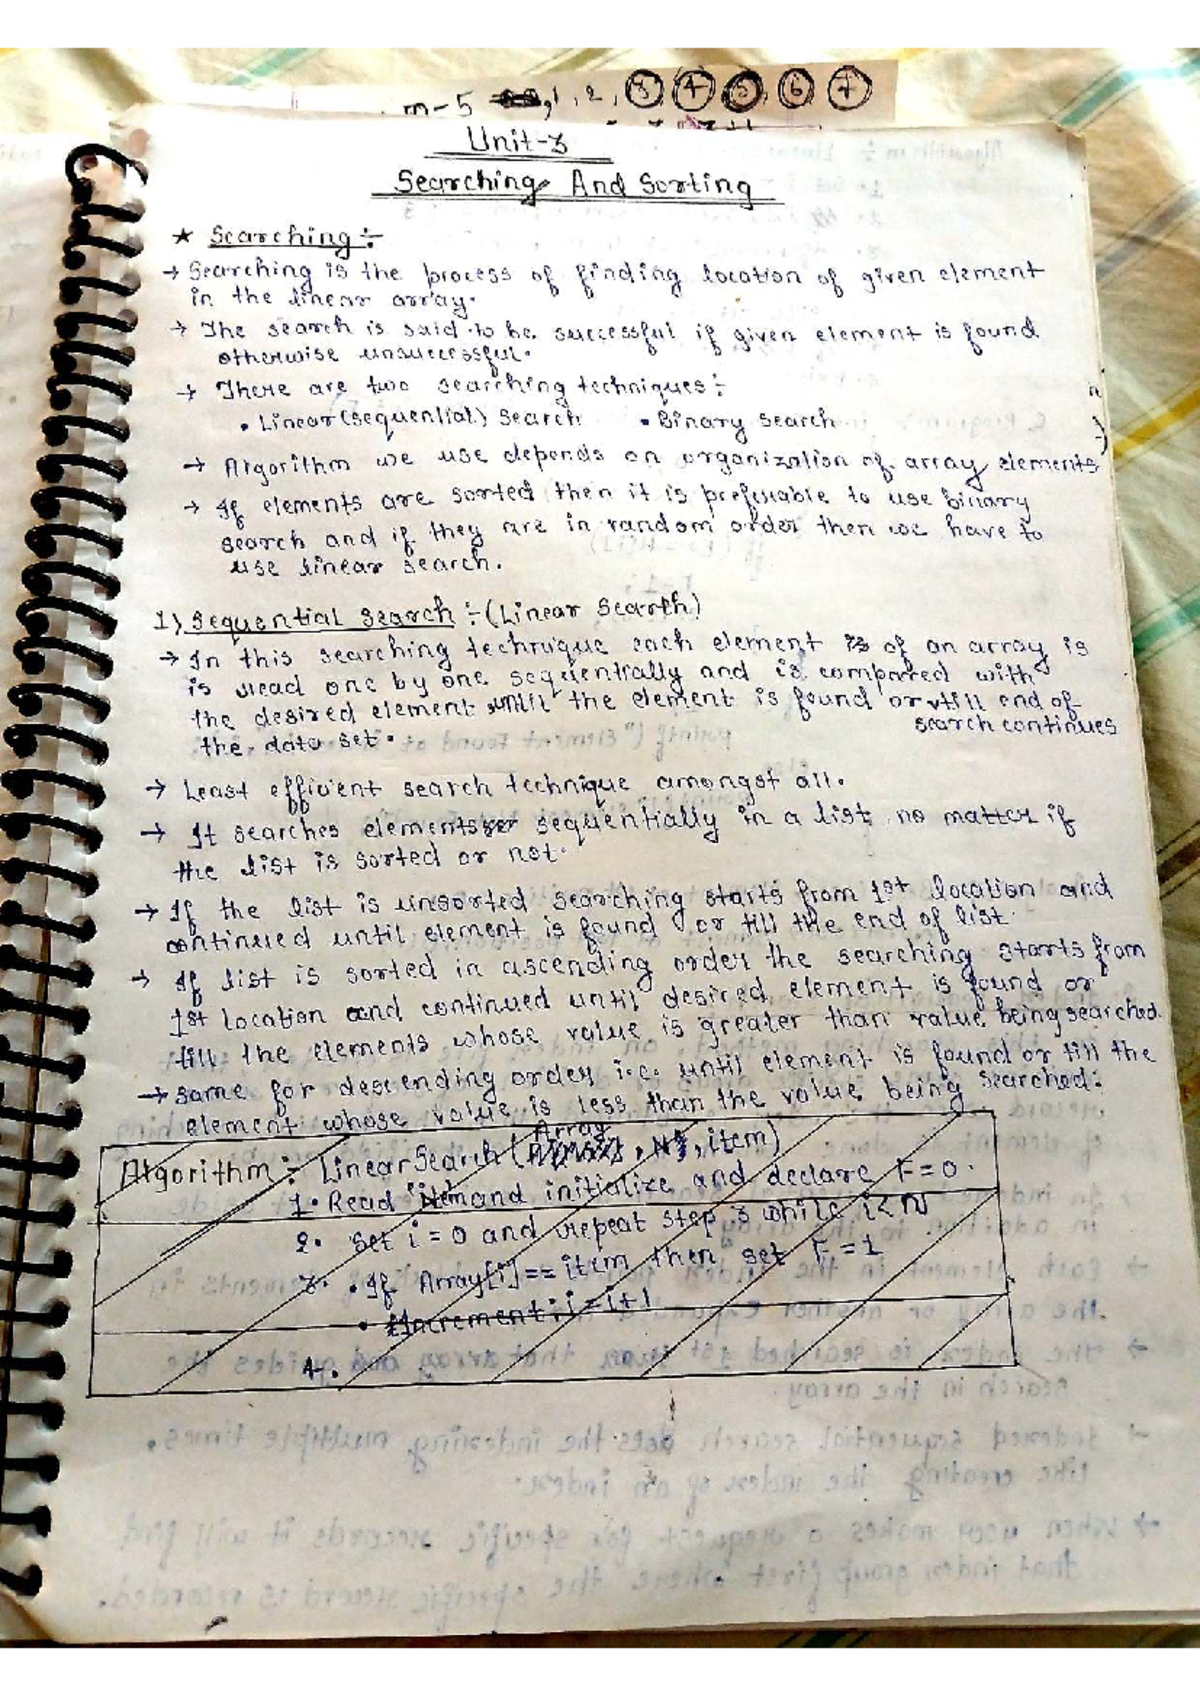 m-5 1, 2, 3, 4, 5, 6, 7
Unit-3
Searching And Sorting
★ Searching :-
→ Searching is the process of finding location of given element
in the linear array.
→ The search is said to be successful if given element is found
otherwise unsuccessful.
→ There are two searching techniques :-
• Linear (Sequential) Search • Binary search
→ Algorithm we use depends on organization of array elements
→ If elements are sorted then it is preferable to use binary
search and if they are in random order then we have to
use linear search.
1) Sequential Search :- (Linear Search)
→ In this searching technique each element is of an array is
is read one by one sequentially and is compared with
the desired element until the element is found or till end of
search continues
the data set.
→ Least efficient search technique amongst all.
→ It searches elements sequentially in a list no matter if
the list is sorted or not.
→ If the list is unsorted searching starts from 1st location and
continued until element is found or till the end of list.
→ If list is sorted in ascending order the searching starts from
1st location and continued until desired element is found or
till the elements whose value is greater than value being searched.
→ same for descending order i.e. until element is found or till the
element whose value is less than the value being searched.
Array
Algorithm :- LinearSearch ( , N, item)
1. Read item and initialize and declare F=0.
2. Set i = 0 and repeat step 3 while i<N
3. • If Array[i] == item then set F = 1
• Increment i = i+1
4.